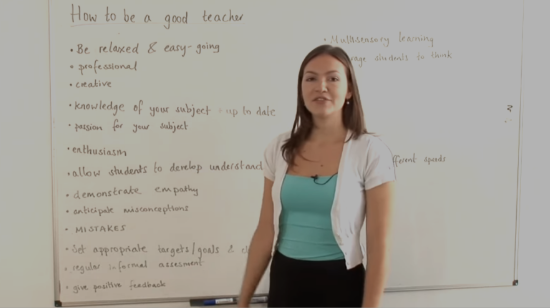 How to be a good teacher
• Be relaxed & easy-going
• professional
• creative
• knowledge of your subject - up to date
• passion for your subject
• enthusiasm
• allow students to develop understand
• demonstrate empathy
• anticipate misconceptions
• MISTAKES
• Set appropriate targets/goals &
• regular informal assesment
• give positive feedback
• Multisensory learning
students to think
speeds